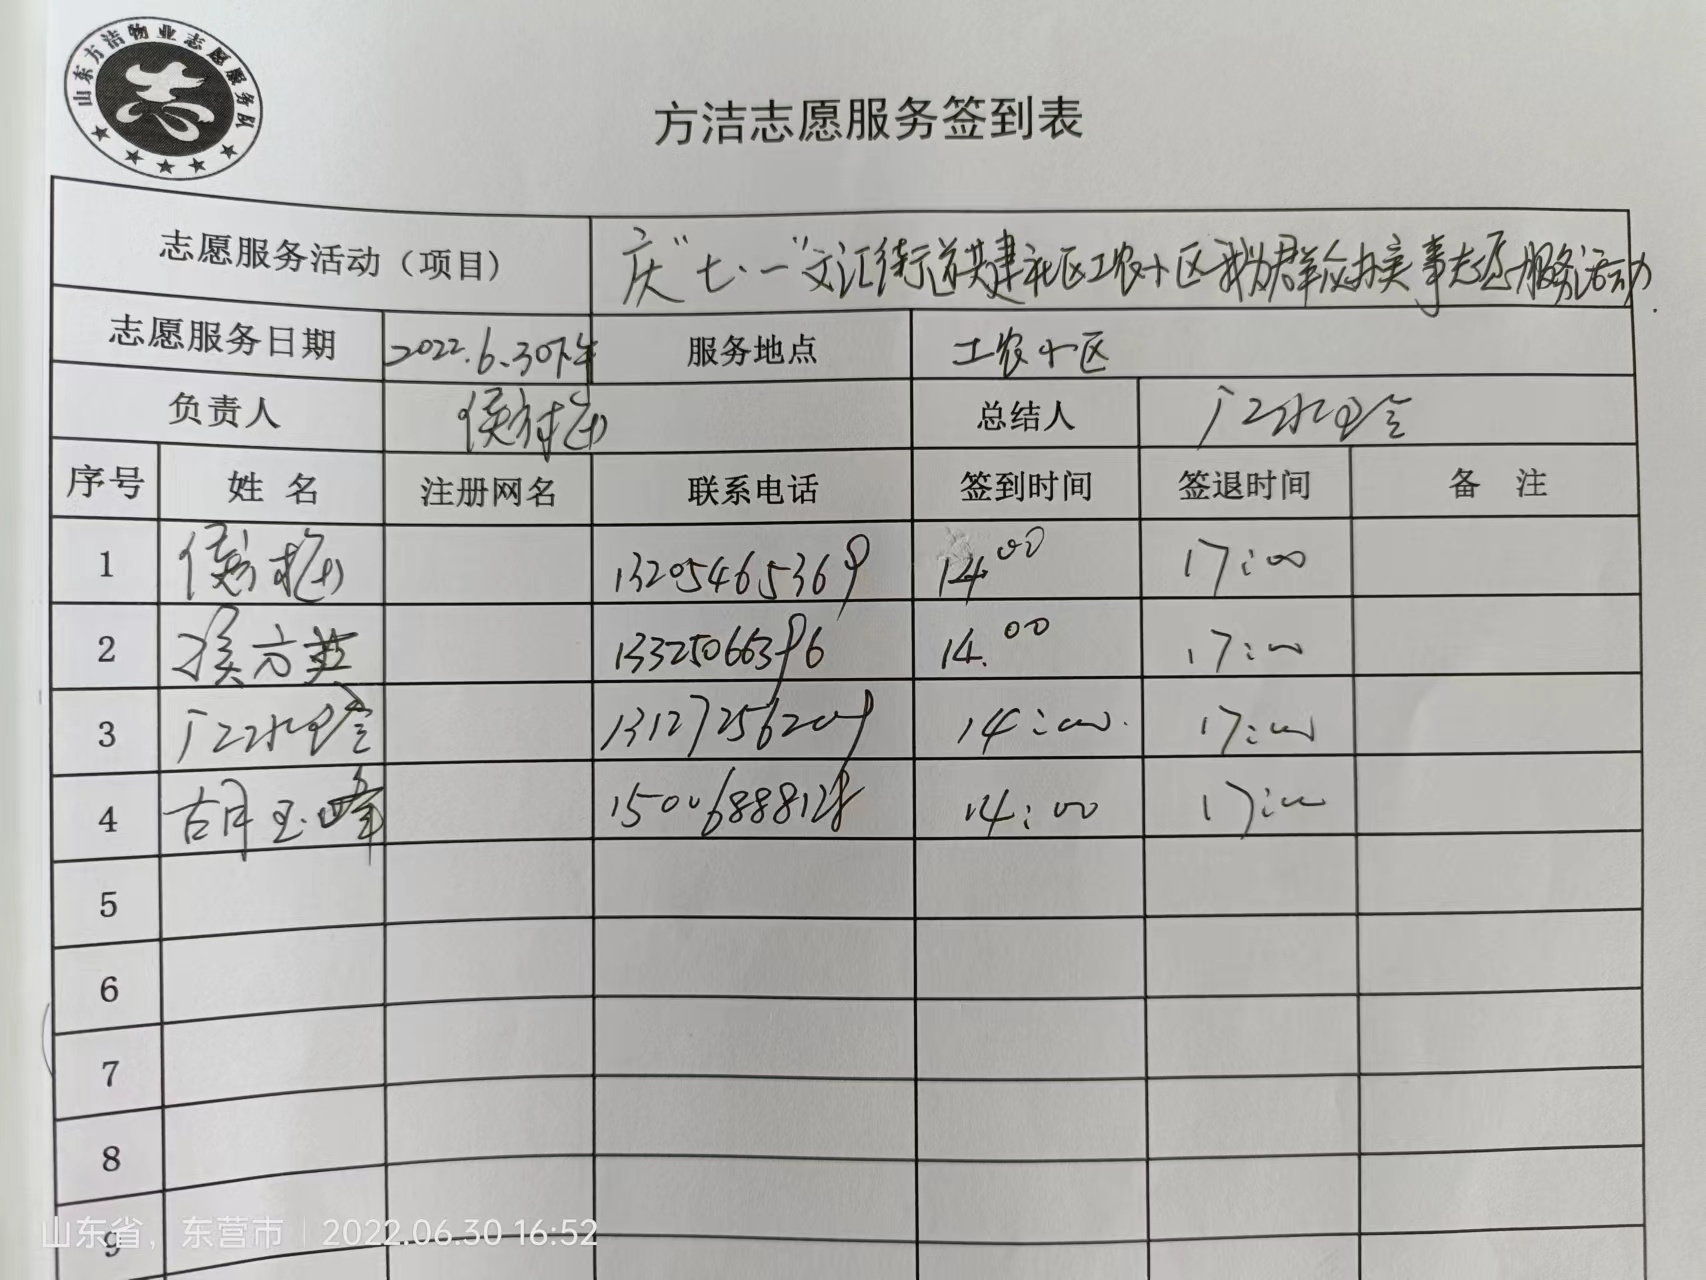 山东方洁物业志愿服务队
方洁志愿服务签到表
志愿服务活动（项目） 庆“七·一”文汇街道共建社区工农小区我为群众办实事志愿服务活动.
志愿服务日期 2022.6.30下午 服务地点 工农小区
负责人 总结人
序号 姓 名 注册网名 联系电话 签到时间 签退时间 备 注
1 13205465369 14.00 17:00
2 13325066396 14.00 17:00
3 13127256209 14:00. 17:00
4 胡玉峰 15006888128 14:00 17:00
5
6
7
8
9
山东省，东营市 | 2022.06.30 16:52